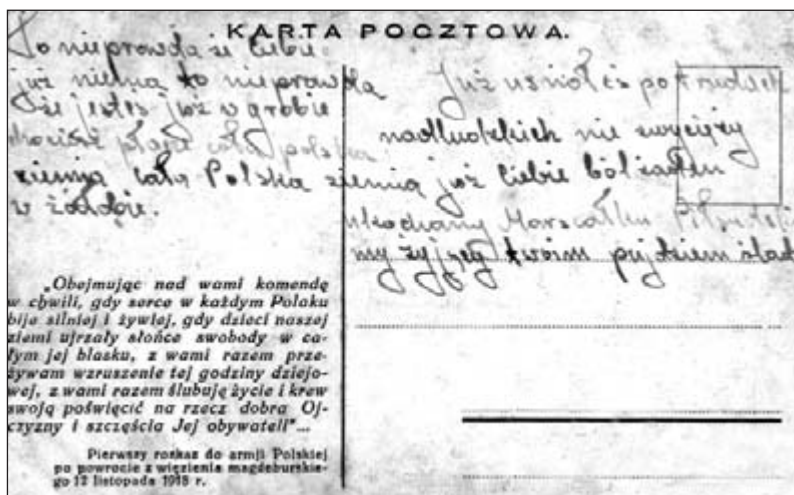 KARTA POCZTOWA.
To nieprawda że Ciebie
już niema to nieprawda
że jesteś już w grobie
chociaż płacze cała polska
ziemia cała Polska ziemia
w żałobie.
Już usnołeś po trudach
nadludzkich nie zwycięży
już Ciebie ból żaden
ukochany Marszałku Piłsudski
my żyjący twoim pójdziem ślad
„Obejmując nad wami komendę
w chwili, gdy serce w każdym Polaku
bije silniej i żywiej, gdy dzieci naszej
ziemi ujrzały słońce swobody w ca-
łym jej blasku, z wami razem prze-
żywam wzruszenie tej godziny dziejo-
wej, z wami razem ślubuję życie i krew
swoją poświęcić na rzecz dobra Oj-
czyzny i szczęścia Jej obywateli"...
Pierwszy rozkaz do armji Polskiej
po powrocie z więzienia magdeburskie-
go 12 listopada 1918 r.